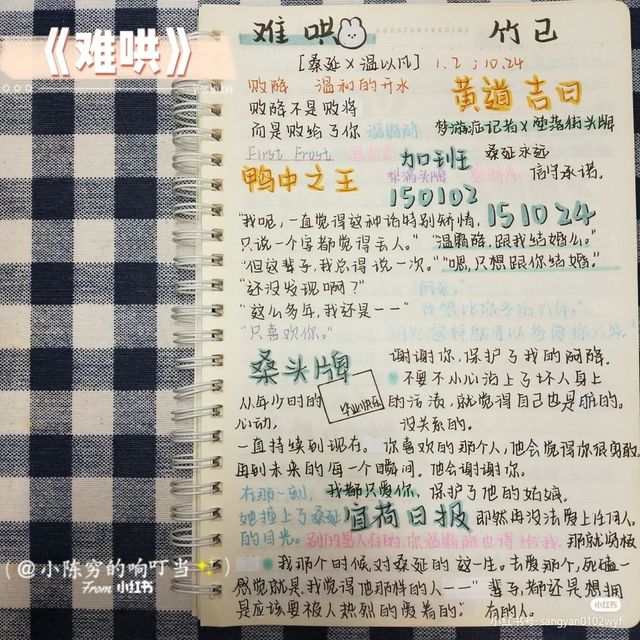 《难哄》
VLOG MY LIFE
难哄
竹已
[桑延×温以凡] 1.2 ; 10.24
败降 温和的开水
黄道吉日
败降不是败将
而是败给了你 温霜降
梦游症记者×堕落街头牌
First Frost
加班
桑延永远
信守承诺。
鸭中之王
150102
151024
"我呢,一直觉得这种话特别矫情,
只说一个字都觉得丢人。"
"温霜降,跟我结婚么。"
"但这辈子,我总得说一次。"
"嗯,只想跟你结婚。"
"还没发现啊?"
"这么多年,我还是——
"只喜欢你。"
桑头牌
谢谢你,保护了我的阿降。
不要不小心沾上了坏人身上
的污渍,就觉得自己也是脏的。
没关系的。
从年少时的
毕业快乐
心动,
一直持续到现在。
你喜欢的那个人,他会觉得你很勇敢,
再到未来的每一个瞬间。
他会谢谢你,
有那一刻,
我都只爱你,
保护了他的姑娘。
她撞上了桑延
的目光。
宜荷日报
即然再没法爱上任何人,
别的男人有的,你温霜降也得给我,
那就算极
我那个时候,对桑延的
这一生。去爱那个,死磕一
感觉就是,我觉得他那样的人——
辈子,都还是想拥
是应该要被人热烈的爱着的。
有的人。
(@小陈穷的响叮当✨)
From 小红书
小红书
小红书号: sangyan0102wyf